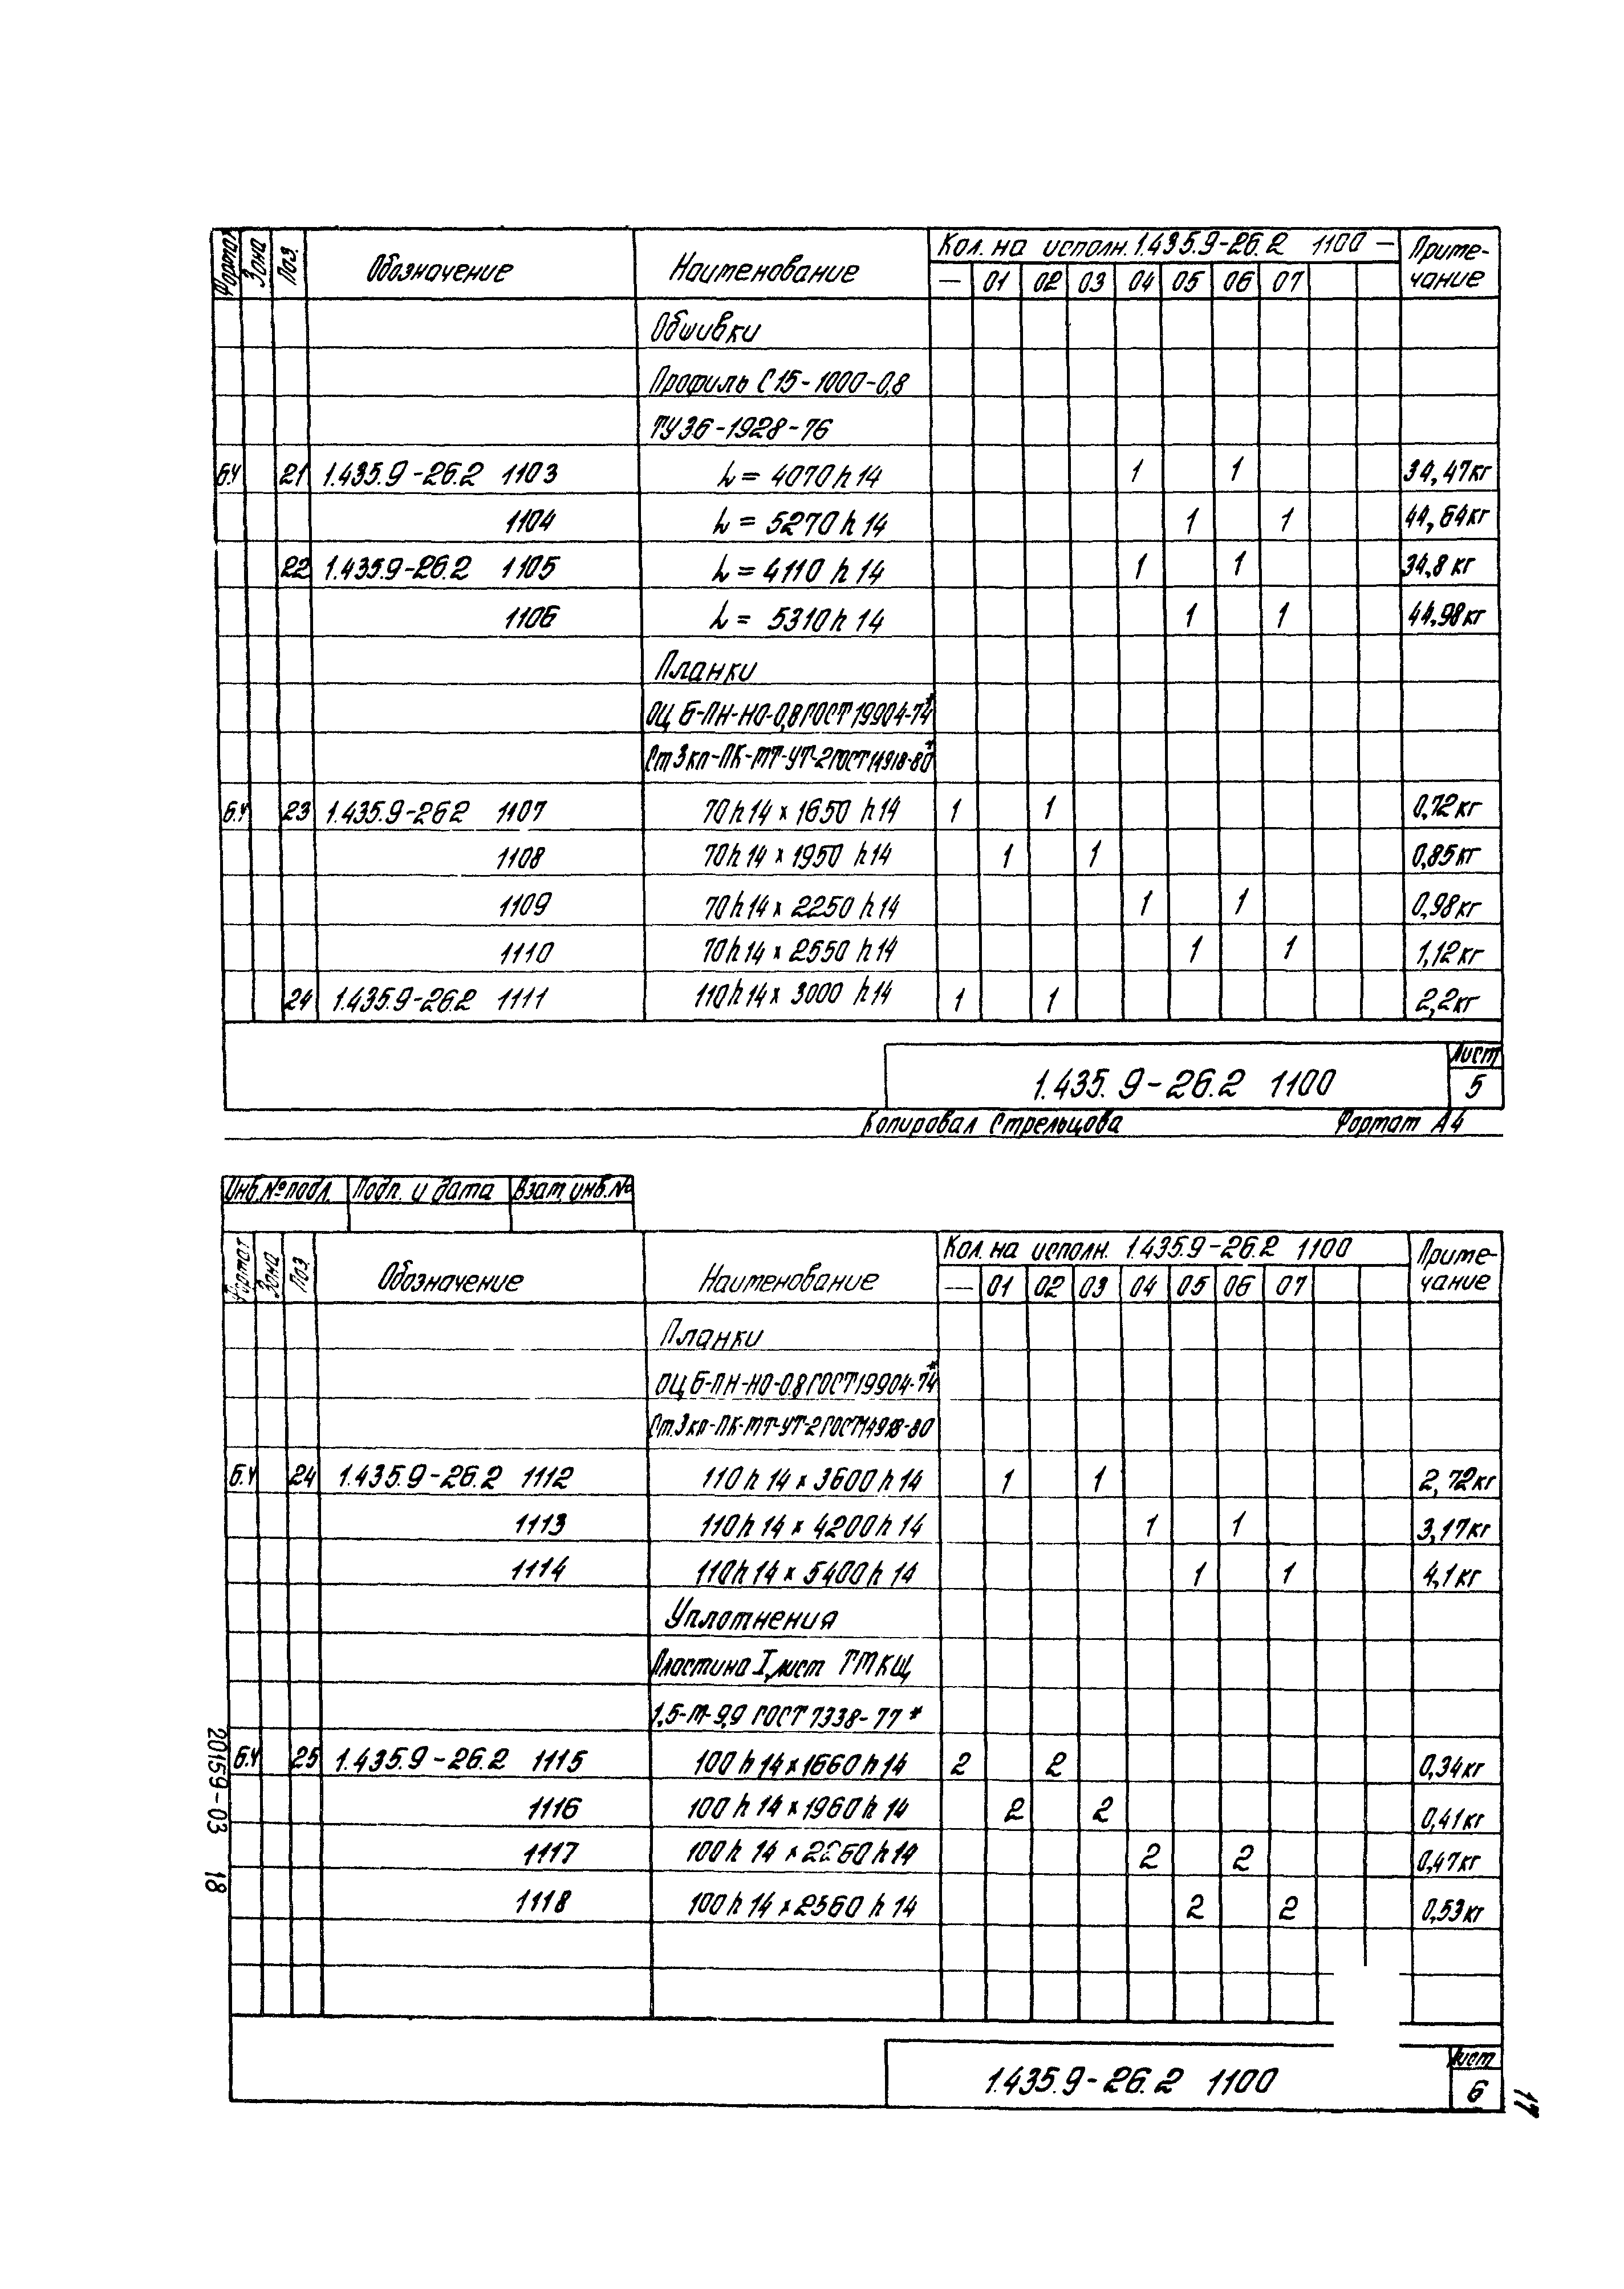 Формат Зона Поз. Обозначение Наименование Кол. на исполн. 1.435.9-26.2 1100 — Приме-
— 01 02 03 04 05 06 07 чание
Обшивки
Профиль С15-1000-0,8
ТУ36-1928-76
Б.Ч 21 1.435.9-26.2 1103 L = 4070 h14 1 1 34,47кг
1104 L = 5270 h14 1 1 44,64кг
22 1.435.9-26.2 1105 L = 4110 h14 1 1 34,8 кг
1106 L = 5310 h14 1 1 44,98кг
Планки
ОЦ Б-ПН-НО-0,8 ГОСТ 19904-74*
Ст3кп-ПК-МТ-УТ-2 ГОСТ 14918-80*
Б.Ч 23 1.435.9-26.2 1107 70 h14 x 1650 h14 1 1 0,72кг
1108 70 h14 x 1950 h14 1 1 0,85кг
1109 70 h14 x 2250 h14 1 1 0,98кг
1110 70 h14 x 2550 h14 1 1 1,12кг
24 1.435.9-26.2 1111 110 h14 x 3000 h14 1 1 2,2кг
1.435.9-26.2 1100 Лист
5
Копировал Стрельцова Формат А4
Инв.№подл. Подп. и дата Взам инв.№
Формат Зона Поз. Обозначение Наименование Кол. на исполн. 1.435.9-26.2 1100 Приме-
— 01 02 03 04 05 06 07 чание
Планки
ОЦ Б-ПН-НО-0.8 ГОСТ 19904-74*
Ст.3кп-ПК-МТ-УТ-2 ГОСТ 14918-80
Б.Ч 24 1.435.9-26.2 1112 110 h14 x 3600 h14 1 1 2,72кг
1113 110 h14 x 4200 h14 1 1 3,17кг
1114 110 h14 x 5400 h14 1 1 4,1кг
Уплотнения
Пластина I, лист ТМКЩ
1,5-М-9,9 ГОСТ 7338-77*
Б.Ч 25 1.435.9-26.2 1115 100 h14 x 1660 h14 2 2 0,34кг
1116 100 h14 x 1960 h14 2 2 0,41кг
1117 100 h14 x 2260 h14 2 2 0,47кг
1118 100 h14 x 2560 h14 2 2 0,53кг
1.435.9-26.2 1100 Лист
6
20159-03 18
17